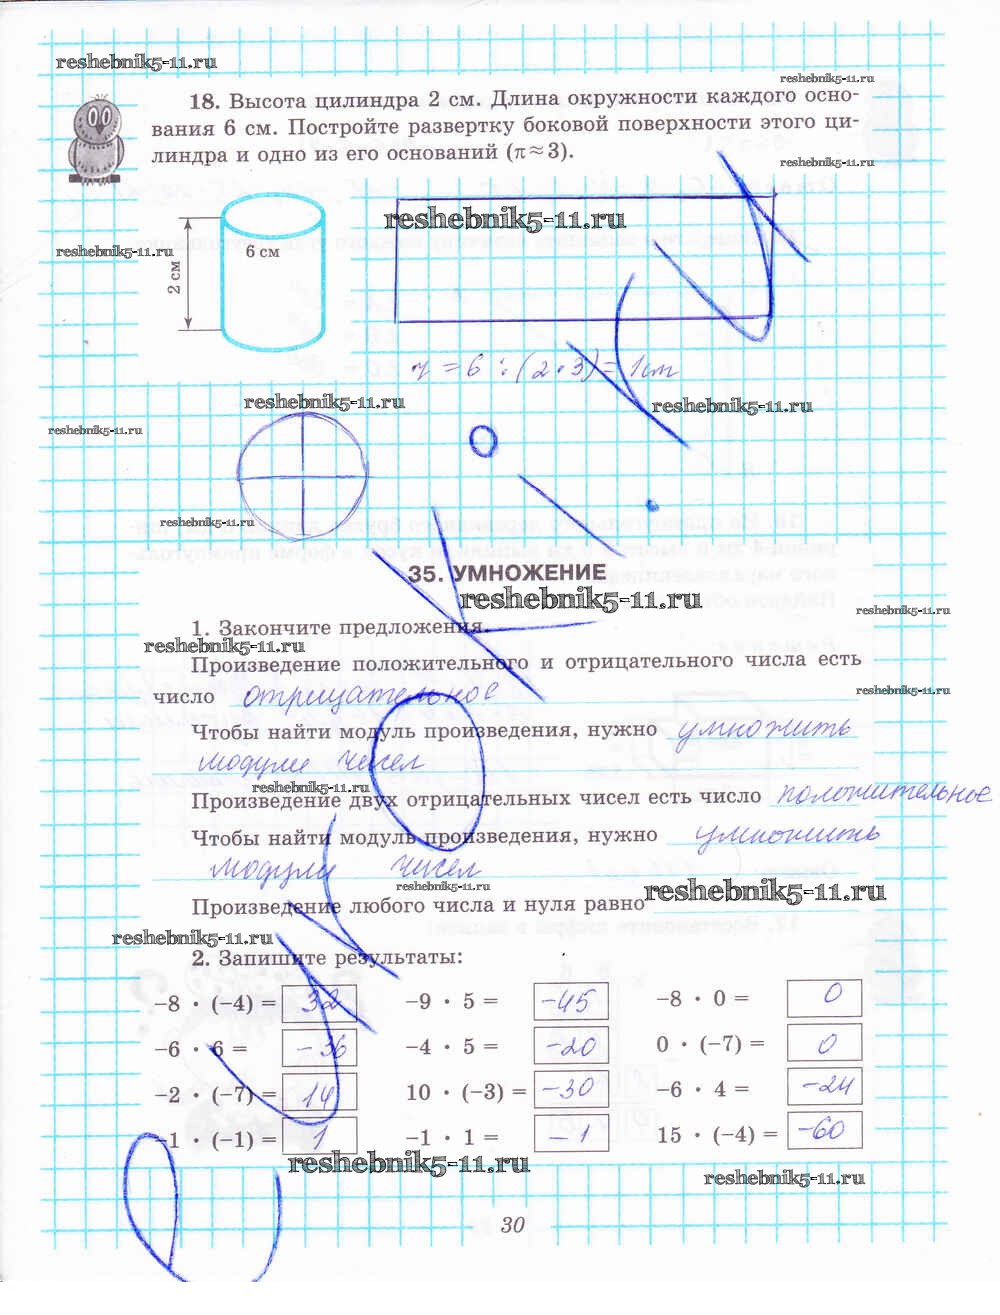 reshebnik5-11.ru
reshebnik5-11.ru
18. Высота цилиндра 2 см. Длина окружности каждого осно-
вания 6 см. Постройте развертку боковой поверхности этого ци-
линдра и одно из его оснований (π≈3).
reshebnik5-11.ru
reshebnik5-11.ru
reshebnik5-11.ru
6 см
2 см
r = 6 : (2 · 3) = 1 см
reshebnik5-11.ru
reshebnik5-11.ru
reshebnik5-11.ru
reshebnik5-11.ru
35. УМНОЖЕНИЕ
reshebnik5-11.ru
reshebnik5-11.ru
1. Закончите предложения.
reshebnik5-11.ru
Произведение положительного и отрицательного числа есть
число отрицательное
reshebnik5-11.ru
Чтобы найти модуль произведения, нужно умножить
модули чисел
reshebnik5-11.ru
Произведение двух отрицательных чисел есть число положительное
Чтобы найти модуль произведения, нужно умножить
модули чисел
reshebnik5-11.ru
reshebnik5-11.ru
Произведение любого числа и нуля равно
reshebnik5-11.ru
2. Запишите результаты:
−8 · (−4) = 32 −9 · 5 = −45 −8 · 0 = 0
−6 · 6 = −36 −4 · 5 = −20 0 · (−7) = 0
−2 · (−7) = 14 10 · (−3) = −30 −6 · 4 = −24
−1 · (−1) = 1 −1 · 1 = −1 15 · (−4) = −60
reshebnik5-11.ru
reshebnik5-11.ru
30